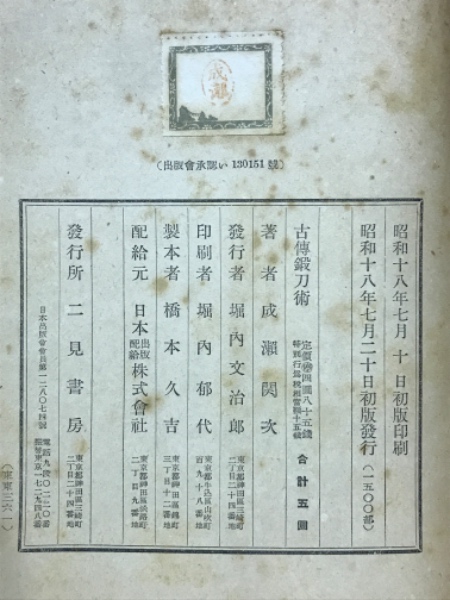 (出版會承認い 130151 號)
昭和十八年七月 十 日初版印刷
昭和十八年七月二十日初版發行 (一五〇〇部)
古傳鍛刀術
定價參四圓八十五錢
特別行爲稅相當額十五錢
合計五圓
著者 成瀬関次
發行者 堀內文治郎
東京都神田區三崎町
二丁目二十四番地
印刷者 堀內郁代
百九十八番地
製本者 橋本久吉
東京都神田區錦町
三丁目十二番地
配給元 日本出版配給株式會社
東京都神田區淡路町
二丁目九番地
發行所 二見書房
東京都神田區三崎町
二丁目二十四番地
電話九段〇二二〇番
振替東京一七二九四八番
日本出版會會員第一二八〇七四號
(東東三六一)